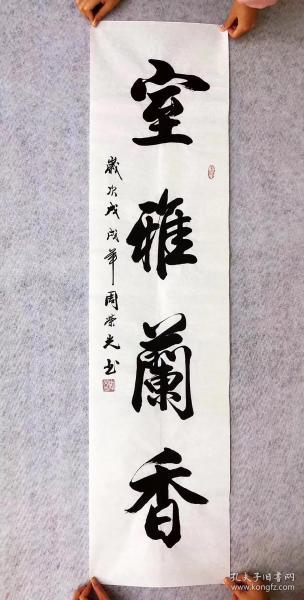 室雅蘭香
歲次戊戌年周荣夫书
孔夫子旧书网
www.kongfz.com